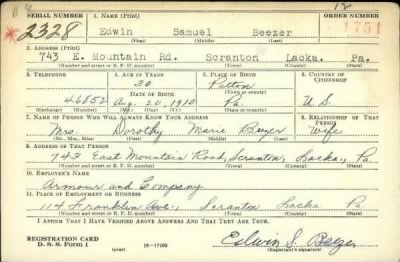 SERIAL NUMBER 1. NAME (Print) ORDER NUMBER
12
2328 Edwin Samuel Beezer 1751
(First) (Middle) (Last)
2. ADDRESS (Print)
743 E. Mountain Rd. Scranton Lacka. Pa.
(Number and street or R. F. D. number) (Town) (County) (State)
3. TELEPHONE 4. AGE IN YEARS 5. PLACE OF BIRTH 6. COUNTRY OF CITIZENSHIP
30 Patton
DATE OF BIRTH (Town or county)
46852 Aug. 20, 1910 Pa. U.S.
(Exchange) (Number) (Mo.) (Day) (Yr.) (State or country)
7. NAME OF PERSON WHO WILL ALWAYS KNOW YOUR ADDRESS 8. RELATIONSHIP OF THAT PERSON
Mrs. Dorothy Marie Beezer Wife
(Mr., Mrs., Miss) (First) (Middle) (Last)
9. ADDRESS OF THAT PERSON
743 East Mountain Road, Scranton, Lacka., Pa.
(Number and street or R. F. D. number) (Town) (County) (State)
10. EMPLOYER'S NAME
Armour and Company
11. PLACE OF EMPLOYMENT OR BUSINESS
114 Franklin Ave., Scranton Lacka Pa
(Number and street or R. F. D. number) (Town) (County) (State)
I AFFIRM THAT I HAVE VERIFIED ABOVE ANSWERS AND THAT THEY ARE TRUE.
REGISTRATION CARD
D. S. S. Form 1 (over) 16—17105 Edwin S. Beezer
(Registrant's signature)